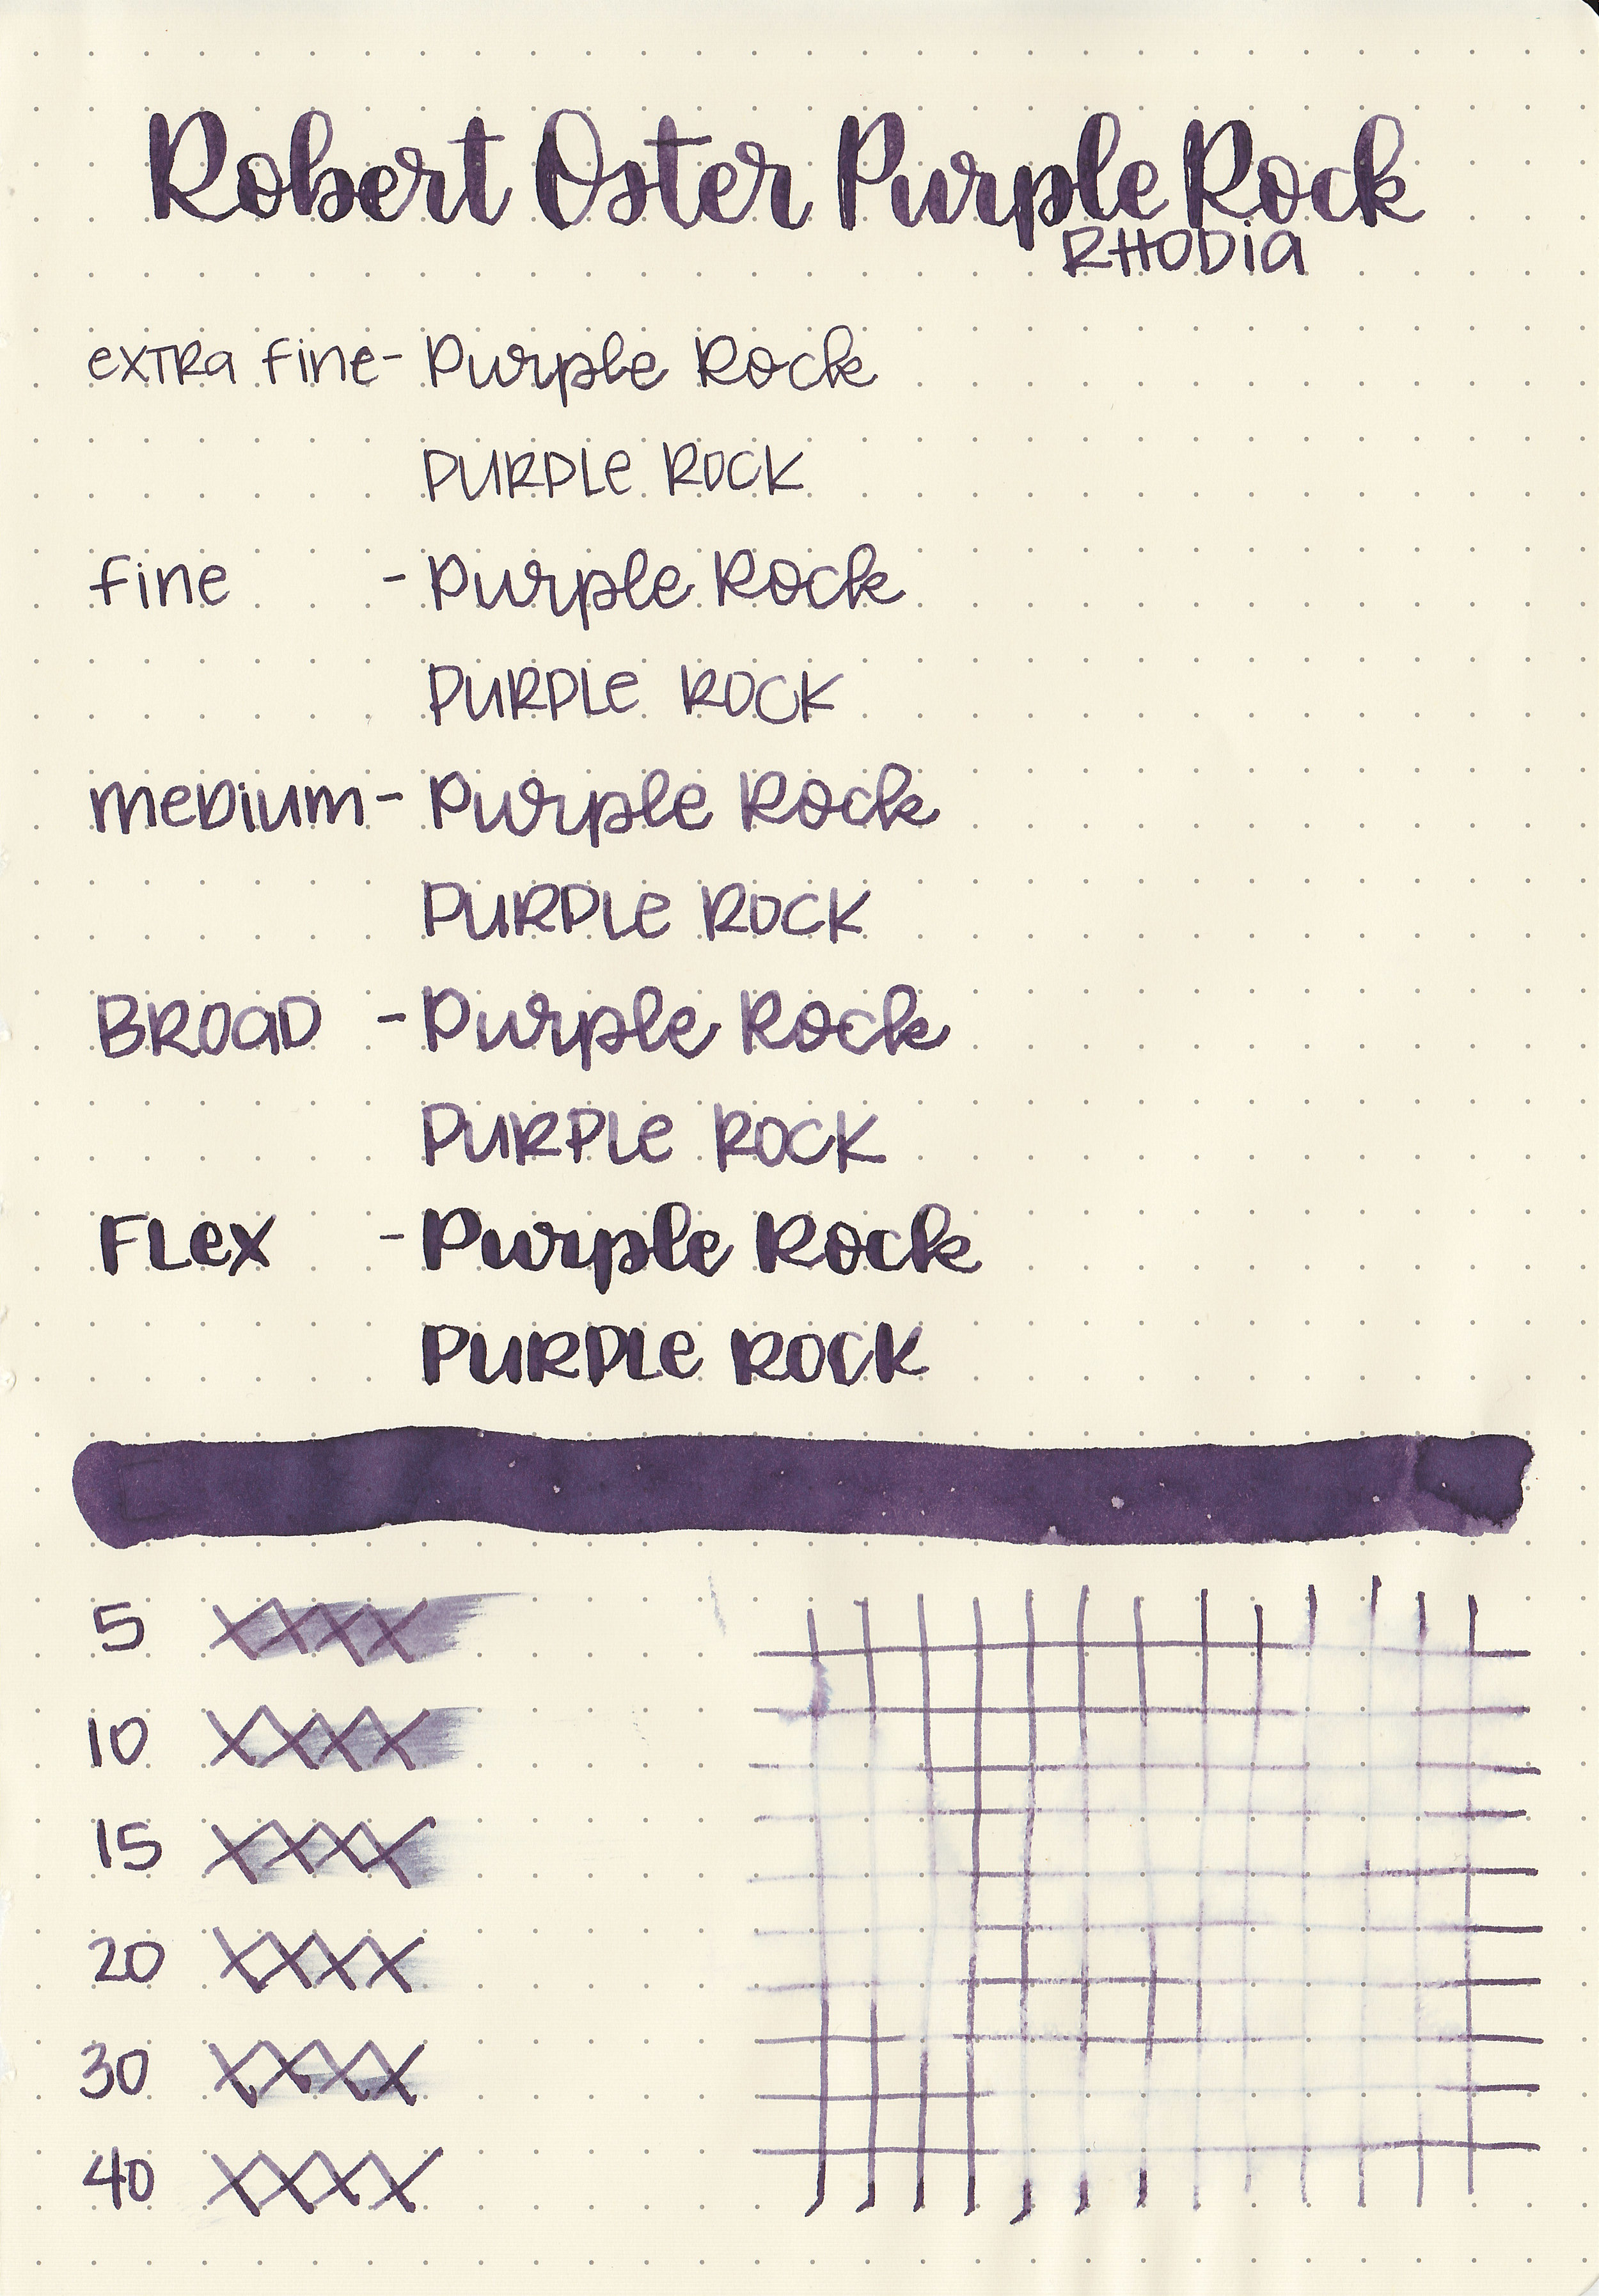 Robert Oster Purple Rock
RHODia
exTRa fine - Purple Rock
PURPLe ROCK
fine - Purple Rock
PURPLe ROCK
meDium - Purple Rock
PURPLe ROCK
BROaD - Purple Rock
PURPLe ROCK
FLex - Purple Rock
PURPLe ROCK
5 XXXX
10 XXXX
15 XXXX
20 XXXX
30 XXXX
40 XXXX